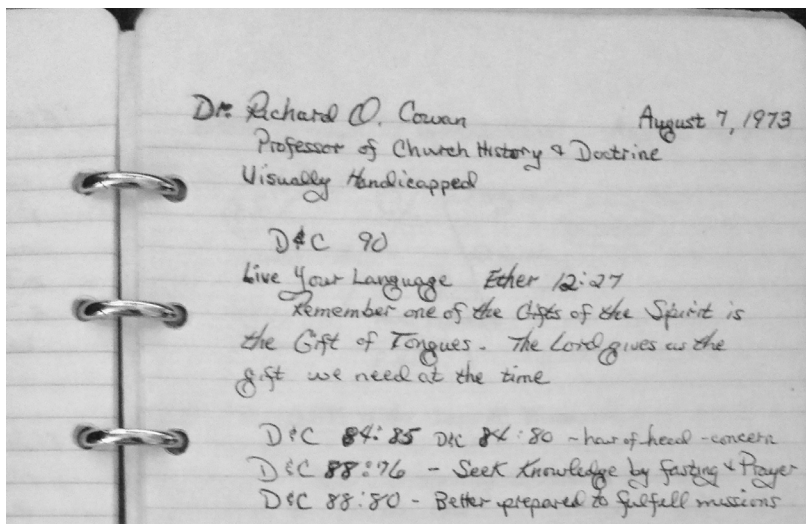 Dr. Richard O. Cowan August 7, 1973
Professor of Church History & Doctrine
Visually Handicapped
D&C 90
Live Your Language Ether 12:27
Remember one of the Gifts of the Spirit is
the Gift of Tongues. The Lord gives us the
gift we need at the time
D&C 84:85 D&C 84:80 - hair of head - concern
D&C 88:76 - Seek Knowledge by fasting & Prayer
D&C 88:80 - Better prepared to fulfall missions